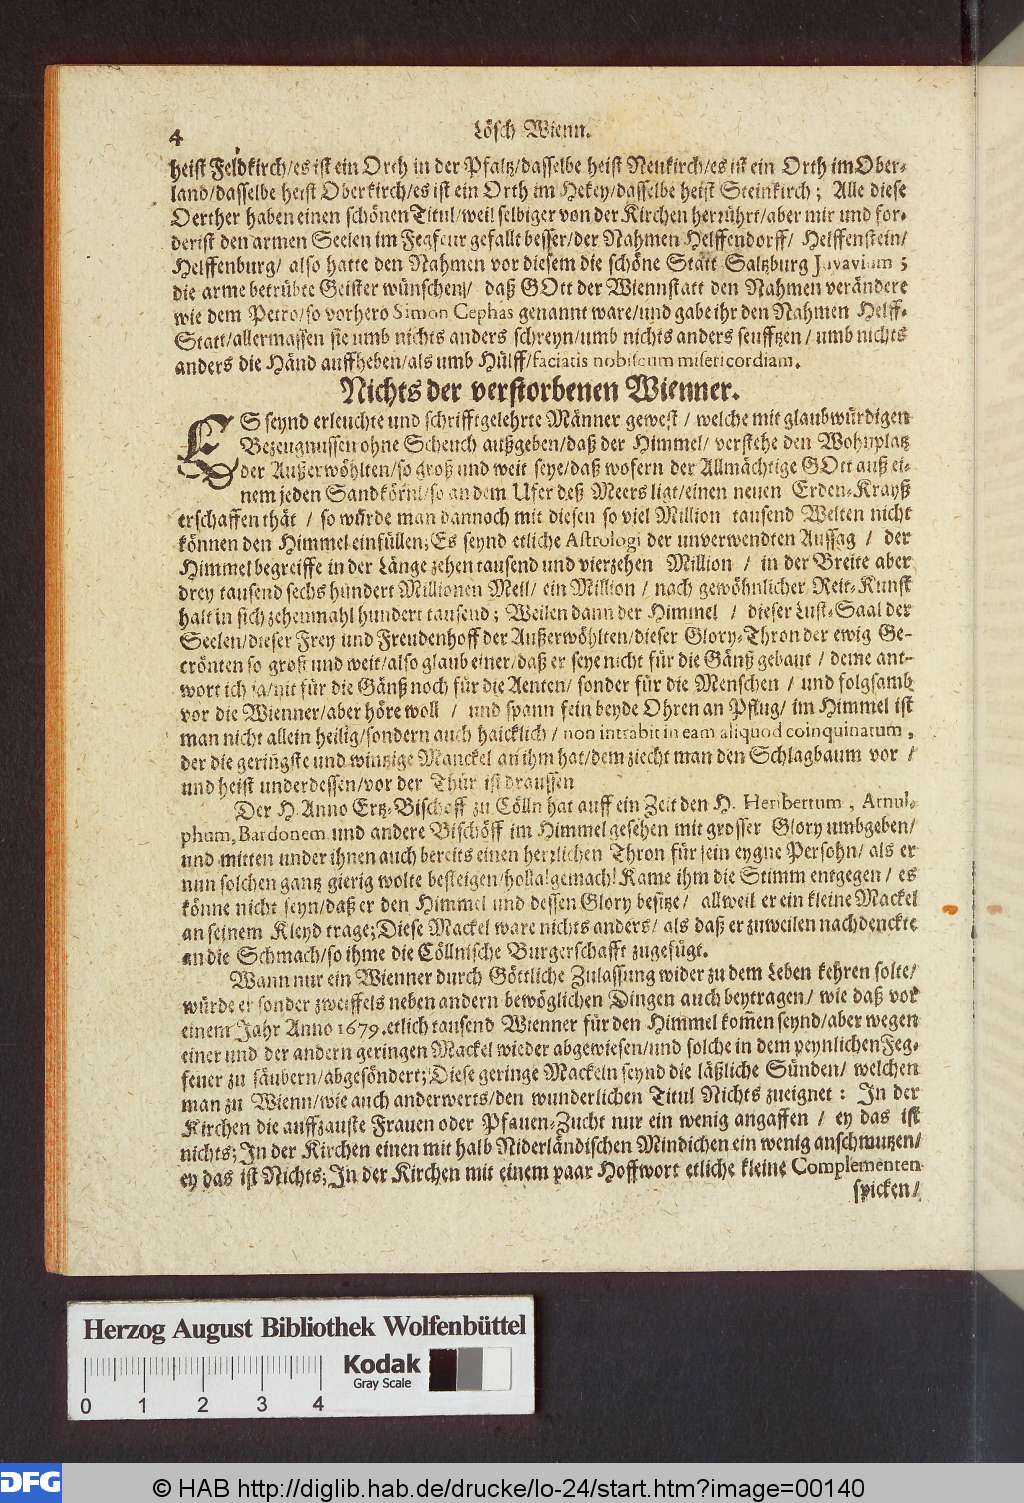 4
Lösch Wienn.
heist Feldkirch/es ist ein Orth in der Pfaltz/dasselbe heist Neukirch/es ist ein Orth im Ober-
land/dasselbe heist Oberkirch/es ist ein Orth im Hekey/dasselbe heist Steinkirch; Alle diese
Oerther haben einen schönen Titul/weil selbiger von der Kirchen herrührt/aber mir und for-
derist den armen Seelen im Fegfeur gefallt besser/der Nahmen Helffendorff/ Helffenstein/
Helffenburg/ also hatte den Nahmen vor diesem die schöne Statt Saltzburg Juvavium;
die arme betrübte Geister wünschen/ daß GOtt der Wiennstatt den Nahmen verändere
wie dem Petro/so vorhero Simon Cephas genannt ware/und gabe ihr den Nahmen Helff-
Statt/allermassen sie umb nichts anders schreyn/umb nichts anders seufftzen/ umb nichts
anders die Händ auffheben/als umb Hülff/faciatis nobiscum misericordiam.
Nichts der verstorbenen Wienner.
ES seynd erleuchte und schrifftgelehrte Männer gewest/ welche mit glaubwürdigen
Bezeugnussen ohne Scheuch außgeben/daß der Himmel/ verstehe den Wohnplatz
der Außerwöhlten/so groß und weit seye/daß wofern der Allmächtige GOtt auß ei-
nem jeden Sandkörnl/so an dem Ufer deß Meers ligt/einen neuen Erden-Krayß
erschaffen thät / so würde man dannoch mit diesen so viel Million tausend Welten nicht
können den Himmel einfüllen; Es seynd etliche Astrologi der unverwendten Aussag / der
Himmel begreiffe in der Länge zehen tausend und vierzehen Million / in der Breite aber
drey tausend sechs hundert Millionen Meil/ ein Million / nach gewöhnlicher Reit-Kunst
halt in sich zehenmahl hundert tausend; Weilen dann der Himmel / dieser Lust-Saal der
Seelen/dieser Frey und Freudenhoff der Außerwöhlten/dieser Glory-Thron der ewig Ge-
crönten so groß und weit/also glaub einer/daß er seye nicht für die Gänß gebaut / deme ant-
wort ich ja/nit für die Gänß noch für die Aenten/ sonder für die Menschen / und folgsamb
vor die Wienner/aber höre woll / und spann fein beyde Ohren an Pflug/ im Himmel ist
man nicht allein heilig/sondern auch haicklich / non intrabit in eam aliquod coinquinatum,
der die geringste und wintzige Manckel an ihm hat/dem ziecht man den Schlagbaum vor /
und heist underdessen/vor der Thür ist draussen
Der H. Anno Ertz-Bischoff zu Cölln hat auff ein Zeit den H. Heribertum, Arnul-
phum, Bardonem und andere Bischöff im Himmel gesehen mit grosser Glory umbgeben/
und mitten under ihnen auch bereits einen herzlichen Thron für sein eygne Persohn/ als er
nun solchen gantz gierig wolte besteigen/holla! gemach! Kame ihm die Stimm entgegen / es
könne nicht seyn/daß er den Himmel und dessen Glory besitze/ allweil er ein kleine Mackel
an seinem Kleyd trage; Diese Mackel ware nichts anders/ als daß er zuweilen nachdenckte
an die Schmach/so ihme die Cöllnische Burgerschafft zugefügt.
Wann nur ein Wienner durch Göttliche Zulassung wider zu dem Leben kehren solte/
würde er sonder zweiffels neben andern bewöglichen Dingen auch beytragen/ wie daß vor
einem Jahr Anno 1679. etlich tausend Wienner für den Himmel kom̃en seynd/aber wegen
einer und der andern geringen Mackel wieder abgewiesen/und solche in dem peynlichen Feg-
feuer zu säubern/abgesöndert; Diese geringe Mackeln seynd die läßliche Sünden/ welchen
man zu Wienn/wie auch anderwerts/den wunderlichen Titul Nichts zueignet: In der
Kirchen die auffzauste Frauen oder Pfauen-Zucht nur ein wenig angaffen / ey das ist
nichts; In der Kirchen einen mit halb Niderländischen Mindichen ein wenig anschmutzen/
ey das ist Nichts; In der Kirchen mit einem paar Hoffwort etliche kleine Complementen
spicken/
Herzog August Bibliothek Wolfenbüttel
Kodak
Gray Scale
0 1 2 3 4
DFG
© HAB http://diglib.hab.de/drucke/lo-24/start.htm?image=00140